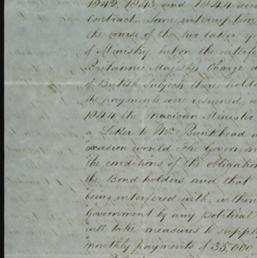 1842, 1843 and 1844 were
Contract. Some interruption
the course of the two latter years
of Ministry but on the interfe
Britannic Majestys Chargé d
of British Subjects there hold
the payments were resumed, a
1844 the Mexican Minister
a Letter to Mr. Bankhead
occasion would the Government
the conditions of the obligation
the Bond holders and that
being interfered with, or thro
Government by any political
will take measures to supply
monthly payments of $35,000